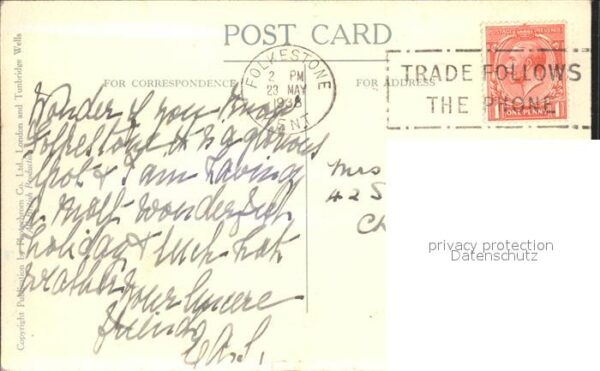 POST CARD
FOR CORRESPONDENCE
FOR ADDRESS
FOLKESTONE
2 PM
23 MAY
193
KENT
TRADE FOLLOWS
THE PHONE
POSTAGE REVENUE
ONE PENNY
Wonder if you know
Folkestone it is a glorious
spot & I am having
a most wonderful
holiday & such hot
weather
Your Sincere
friend
Mrs
42 S
Ch
privacy protection
Datenschutz
Copyright Publication by Photochrom Co. Ltd., London and Tunbridge Wells
Production